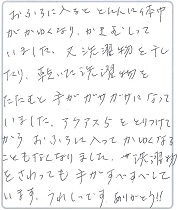 おふろに入ると とたんに体中
がかゆくなり、がまんして
いました。又洗濯物を干し
たり、乾いた洗濯物を
たたむと手がガサガサになって
いました。アクアス5をとりつけて
から おふろに入ってかゆくなる
こともなくなりました。洗濯物
をさわっても 手がすべすべして
います。うれしいです ありがとう!!